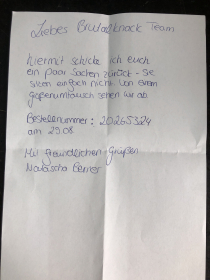 Liebes Brutalknack Team
hiermit schicke ich euch
ein paar Socken zurück - sie
sitzen einfach nicht. Von einem
Größenumtausch sehen wir ab.
Bestellnummer: 20265324
am 29.08
Mit freundlichen Grüßen
Natascha